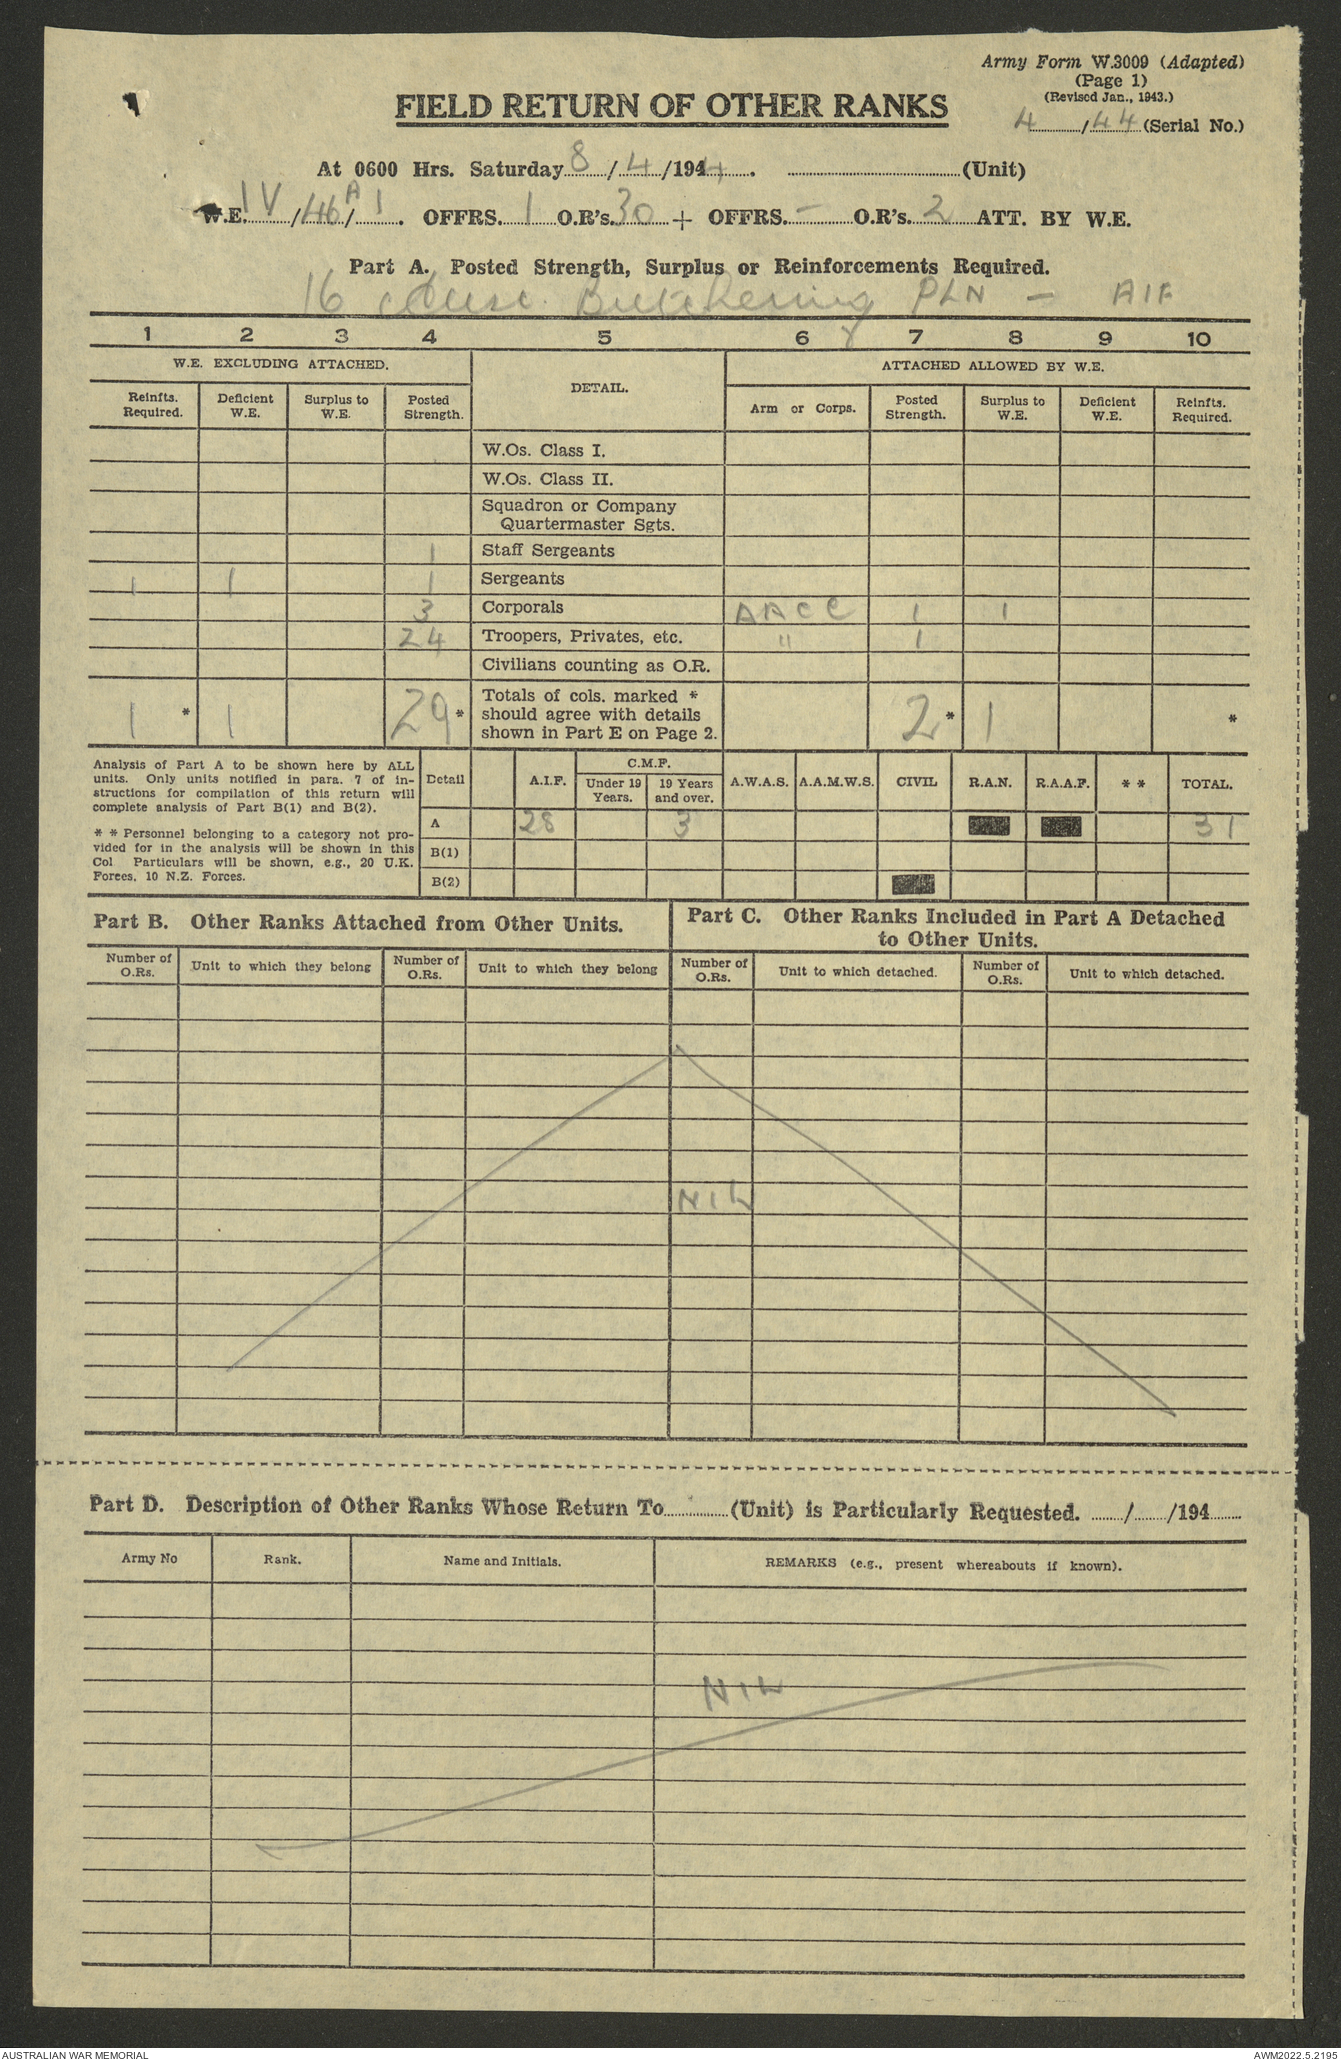 Army Form W.3009 (Adapted)
(Page 1)
(Revised Jan., 1943.)
FIELD RETURN OF OTHER RANKS
4/44 (Serial No.)
At 0600 Hrs. Saturday 8/4/1944. (Unit)
W.E. IV/46A/1. OFFRS. 1 O.R's. 30 + OFFRS. - O.R's. 2 ATT. BY W.E.
Part A. Posted Strength, Surplus or Reinforcements Required.
16 Butchering PLN - AIF
1 2 3 4 5 6 7 8 9 10
W.E. EXCLUDING ATTACHED. DETAIL. ATTACHED ALLOWED BY W.E.
Reinfts. Required. Deficient W.E. Surplus to W.E. Posted Strength. Arm or Corps. Posted Strength. Surplus to W.E. Deficient W.E. Reinfts. Required.
W.Os. Class I.
W.Os. Class II.
Squadron or Company
Quartermaster Sgts.
1 Staff Sergeants
1 1 1 Sergeants
3 Corporals AACC 1 1
24 Troopers, Privates, etc. " 1
Civilians counting as O.R.
1 * 1 29 * Totals of cols. marked * should agree with details shown in Part E on Page 2. 2 * 1 *
Analysis of Part A to be shown here by ALL
units. Only units notified in para. 7 of in-
structions for compilation of this return will
complete analysis of Part B(1) and B(2).
* * Personnel belonging to a category not pro-
vided for in the analysis will be shown in this
Col Particulars will be shown, e.g., 20 U.K.
Forces, 10 N.Z. Forces.
Detail A.I.F. C.M.F. Under 19 Years. 19 Years and over. A.W.A.S. A.A.M.W.S. CIVIL R.A.N. R.A.A.F. * * TOTAL.
A 28 3 31
B(1)
B(2)
Part B. Other Ranks Attached from Other Units.
Part C. Other Ranks Included in Part A Detached
to Other Units.
Number of O.Rs. Unit to which they belong Number of O.Rs. Unit to which they belong Number of O.Rs. Unit to which detached. Number of O.Rs. Unit to which detached.
NIL
Part D. Description of Other Ranks Whose Return To (Unit) is Particularly Requested. / /194
Army No Rank. Name and Initials. REMARKS (e.g., present whereabouts if known).
NIL
AUSTRALIAN WAR MEMORIAL AWM2022.5.2195